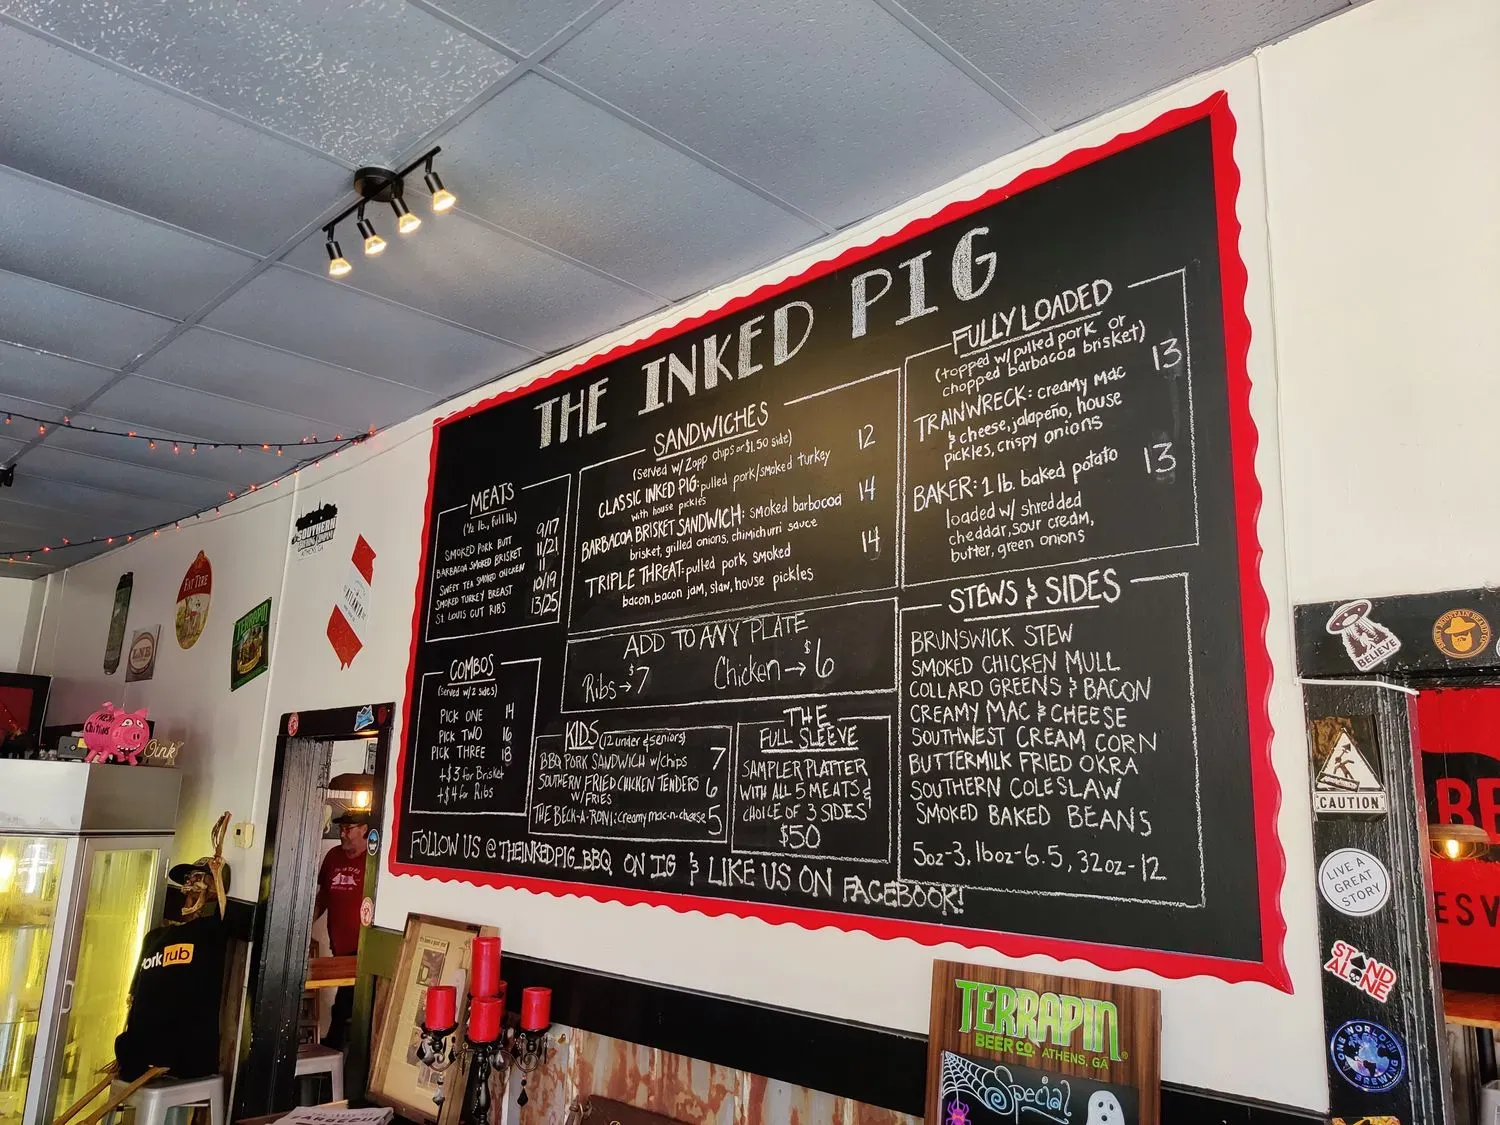 THE INKED PIG
MEATS
(½ lb, full lb)
SMOKED PORK BUTT 9/17
BARBACOA SMOKED BRISKET 11/21
SWEET TEA SMOKED CHICKEN 11
SMOKED TURKEY BREAST 10/19
ST. LOUIS CUT RIBS 13/25
COMBOS
(Served w/2 sides)
PICK ONE 14
PICK TWO 16
PICK THREE 18
+$3 for Brisket
+$4 for Ribs
SANDWICHES
(Served w/ Zapp chips or $1.50 side)
CLASSIC INKED PIG: pulled pork/smoked turkey 12
with house pickles
BARBACOA BRISKET SANDWICH: smoked barbocoa 14
brisket, grilled onions, chimichurri sauce
TRIPLE THREAT: pulled pork, smoked 14
bacon, bacon jam, slaw, house pickles
ADD TO ANY PLATE
Ribs→$7 Chicken→$6
KIDS (12 under & seniors)
BBQ PORK SANDWICH w/chips 7
SOUTHERN FRIED CHICKEN TENDERS 6
W/FRIES
THE BECK-A-RONI: creamy mac-n-cheese 5
THE
FULL SLEEVE
SAMPLER PLATTER
WITH ALL 5 MEATS &
CHOICE OF 3 SIDES
$50
FULLY LOADED
(topped w/ pulled pork or
chopped barbacoa brisket)
TRAINWRECK: creamy mac 13
& cheese, jalapeño, house
pickles, crispy onions
BAKER: 1 lb. baked potato 13
loaded w/ shredded
cheddar, sour cream,
butter, green onions
STEWS & SIDES
BRUNSWICK STEW
SMOKED CHICKEN MULL
COLLARD GREENS & BACON
CREAMY MAC & CHEESE
SOUTHWEST CREAM CORN
BUTTERMILK FRIED OKRA
SOUTHERN COLESLAW
SMOKED BAKED BEANS
5oz-3, 16oz-6.5, 32oz-12
FOLLOW US @THEINKEDPIG_BBQ ON IG & LIKE US ON FACEBOOK!
SOUTHERN
ATHENS, GA
FAT TIRE
TERRAPIN
Chitlins
Oink
rub
TERRAPIN
BEER CO. ATHENS, GA
Special
BELIEVE
CAUTION
LIVE A
GREAT
STORY
STAND
ALONE
ONE WORLD
BREWING